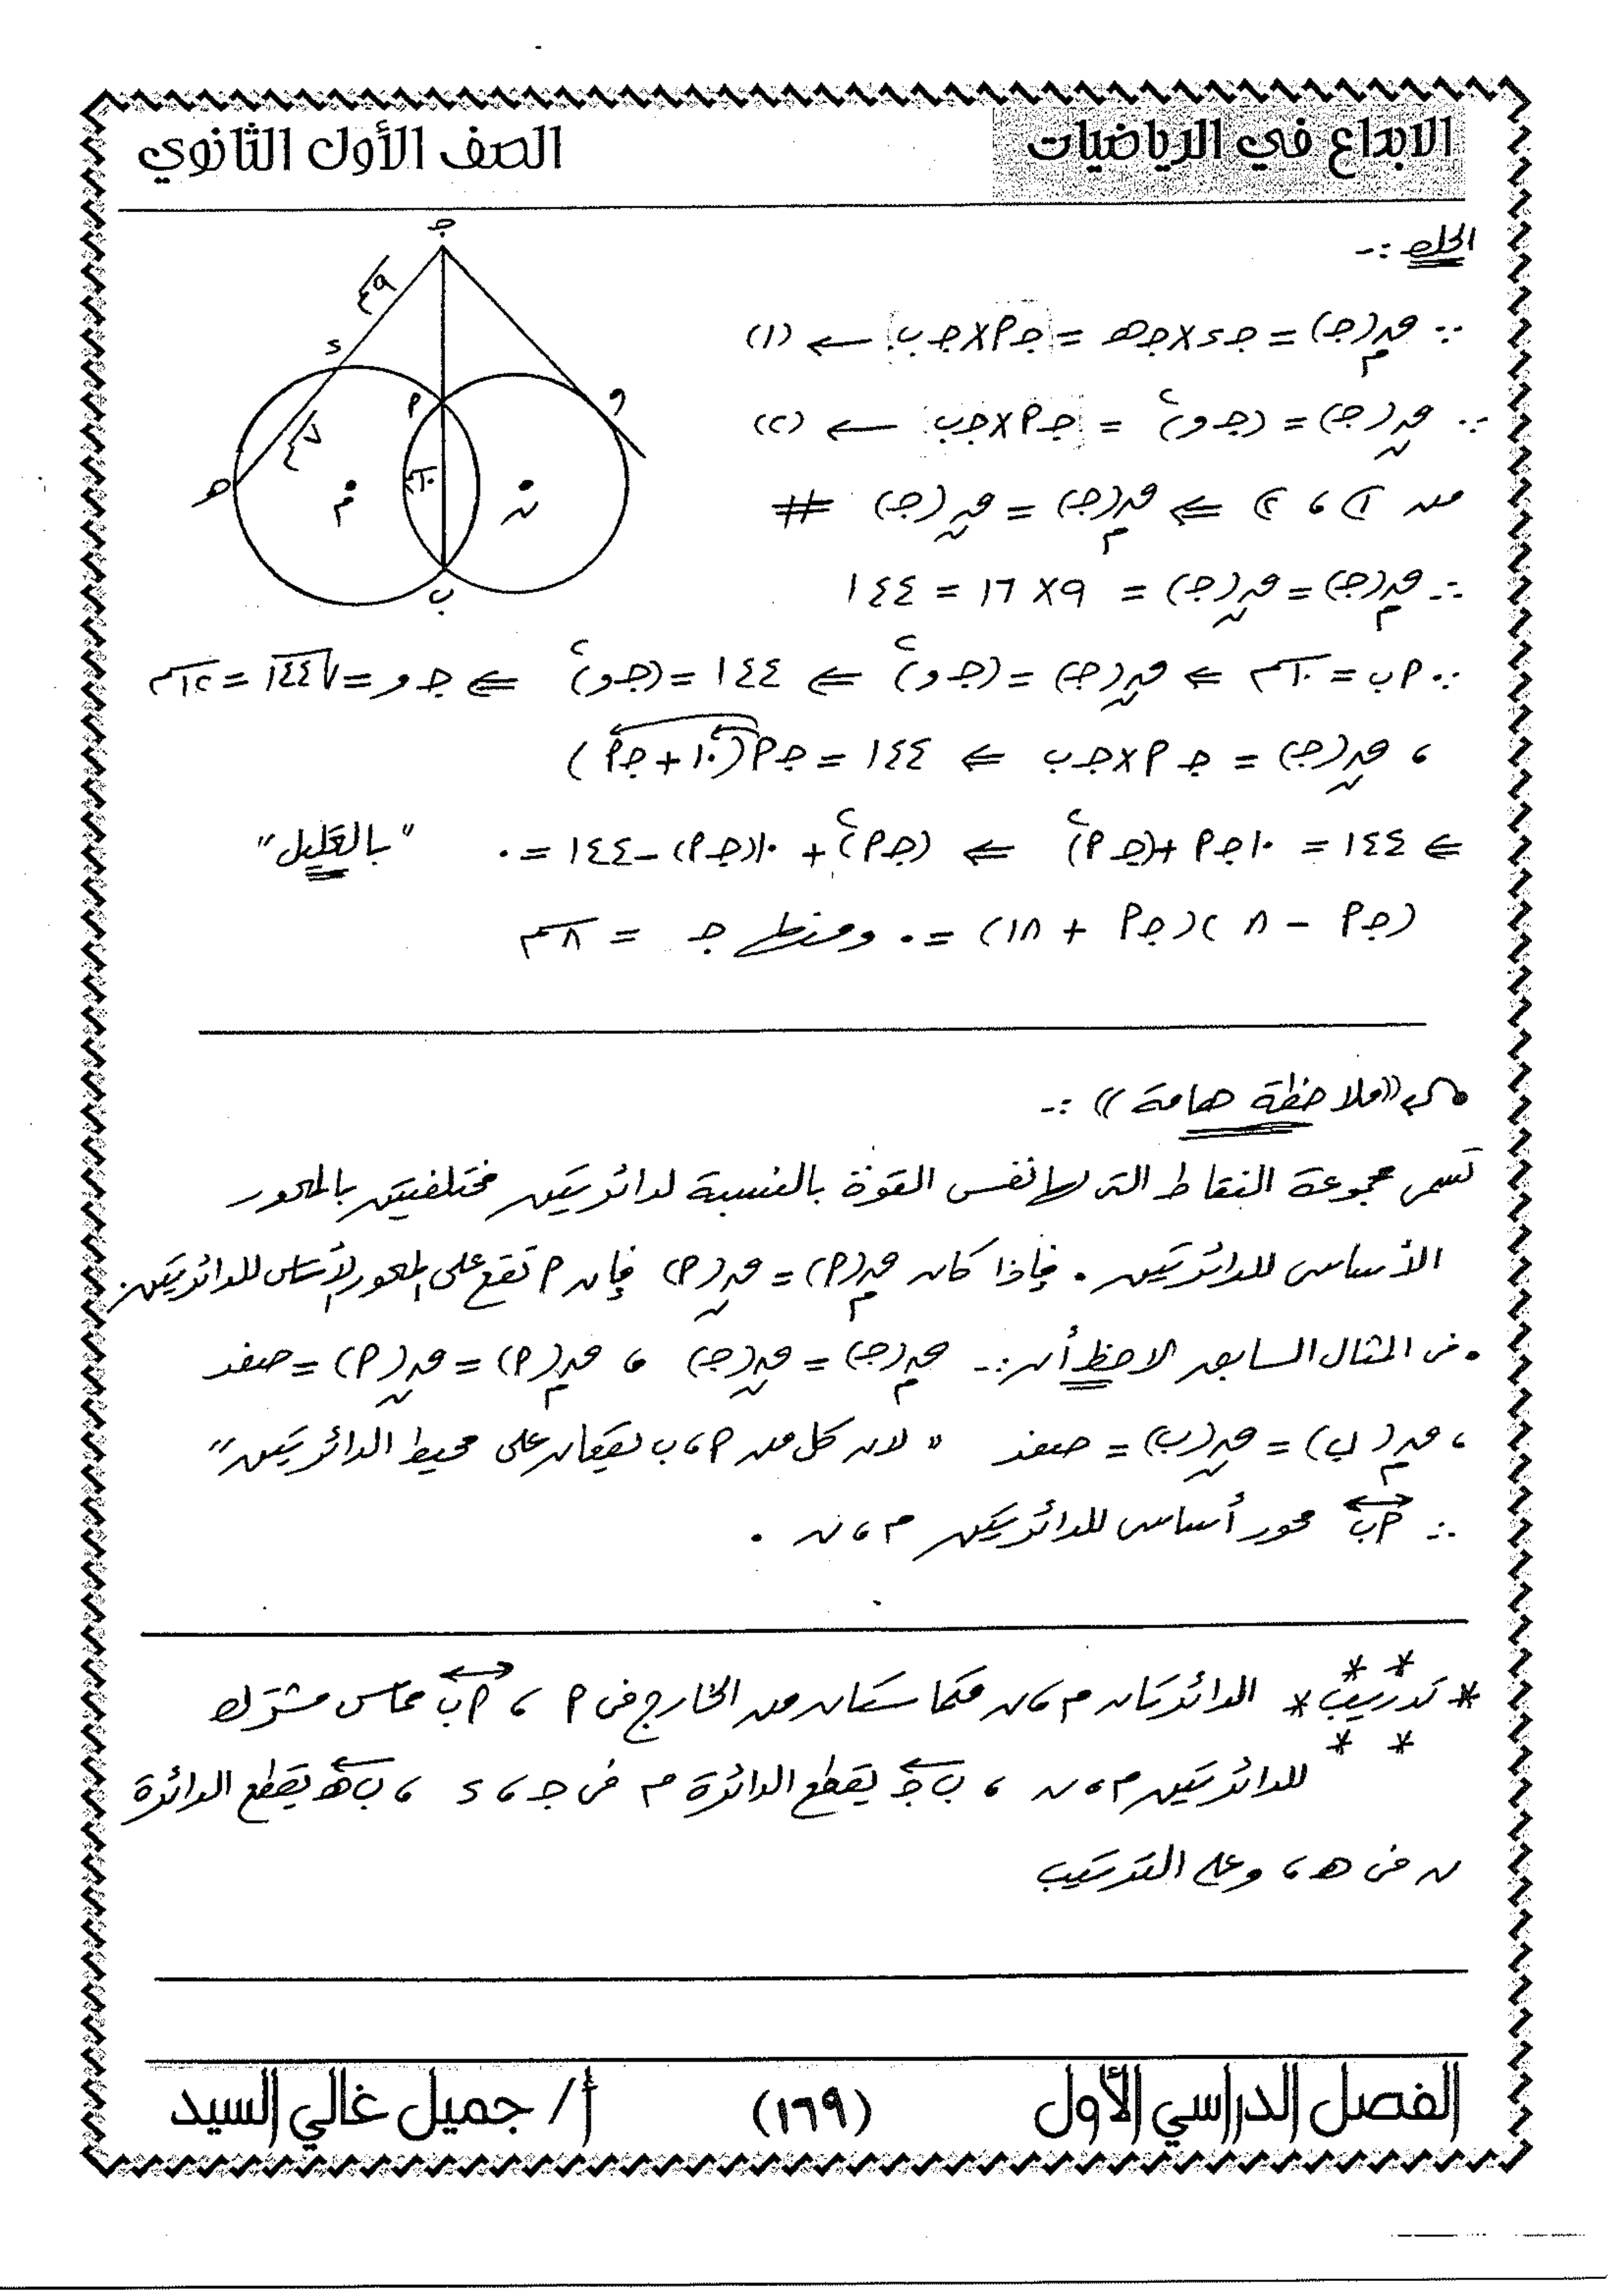 الابداع في الرياضيات
الصف الأول الثانوي
الحل :-
∵ قم(ج) = ج د × ج هـ = ج أ × ج ب ← (١)
∵ قن(ج) = (ج و)² = ج أ × ج ب ← (٢)
من ① ، ② ⇐ قم(ج) = قن(ج) #
∴ قم(ج) = قن(ج) = ٩ × ١٦ = ١٤٤
∵ أ ب = ١٠سم ⇐ قن(ج) = (ج و)² ⇐ ١٤٤ = (ج و)² ⇐ ج و = √١٤٤ = ١٢سم
، قن(ج) = ج أ × ج ب ⇐ ١٤٤ = ج أ (١٠ + ج أ)
⇐ ١٤٤ = ١٠ ج أ + (ج أ)² ⇐ (ج أ)² + ١٠(ج أ) - ١٤٤ = ٠ "بالتحليل"
(ج أ - ٨)(ج أ + ١٨) = ٠ ومنها ج = ٨سم
ج
٩سم
د
أ
و
٧سم
١٠سم
هـ
م
ن
ب
((ملاحظة هامة)) :-
تسمى مجموعة النقاط التى لها نفس القوة بالنسبة لدائرتين مختلفتين بالمحور
الأساسى للدائرتين . فإذا كان قم(أ) = قن(أ) فإن أ تقع على المحور الأساسى للدائرتين.
• فى المثال السابق لاحظ أن :- قم(ج) = قن(ج) ، قم(أ) = قن(أ) = صفر
، قم(ب) = قن(ب) = صفر " لان كل من أ ، ب يقعان على محيط الدائرتين "
∴ أ ب محور أساسى للدائرتين م ، ن .
* تدريب * الدائرتان م ، ن متماستان من الخارج فى أ ، أ ب مماس مشترك
للدائرتين م ، ن ، ب ج يقطع الدائرة م فى ج ، د ، ب هـ يقطع الدائرة
ن فى هـ ، و على الترتيب
الفصل الدراسي الأول
(١٦٩)
أ / جميل غالي السيد